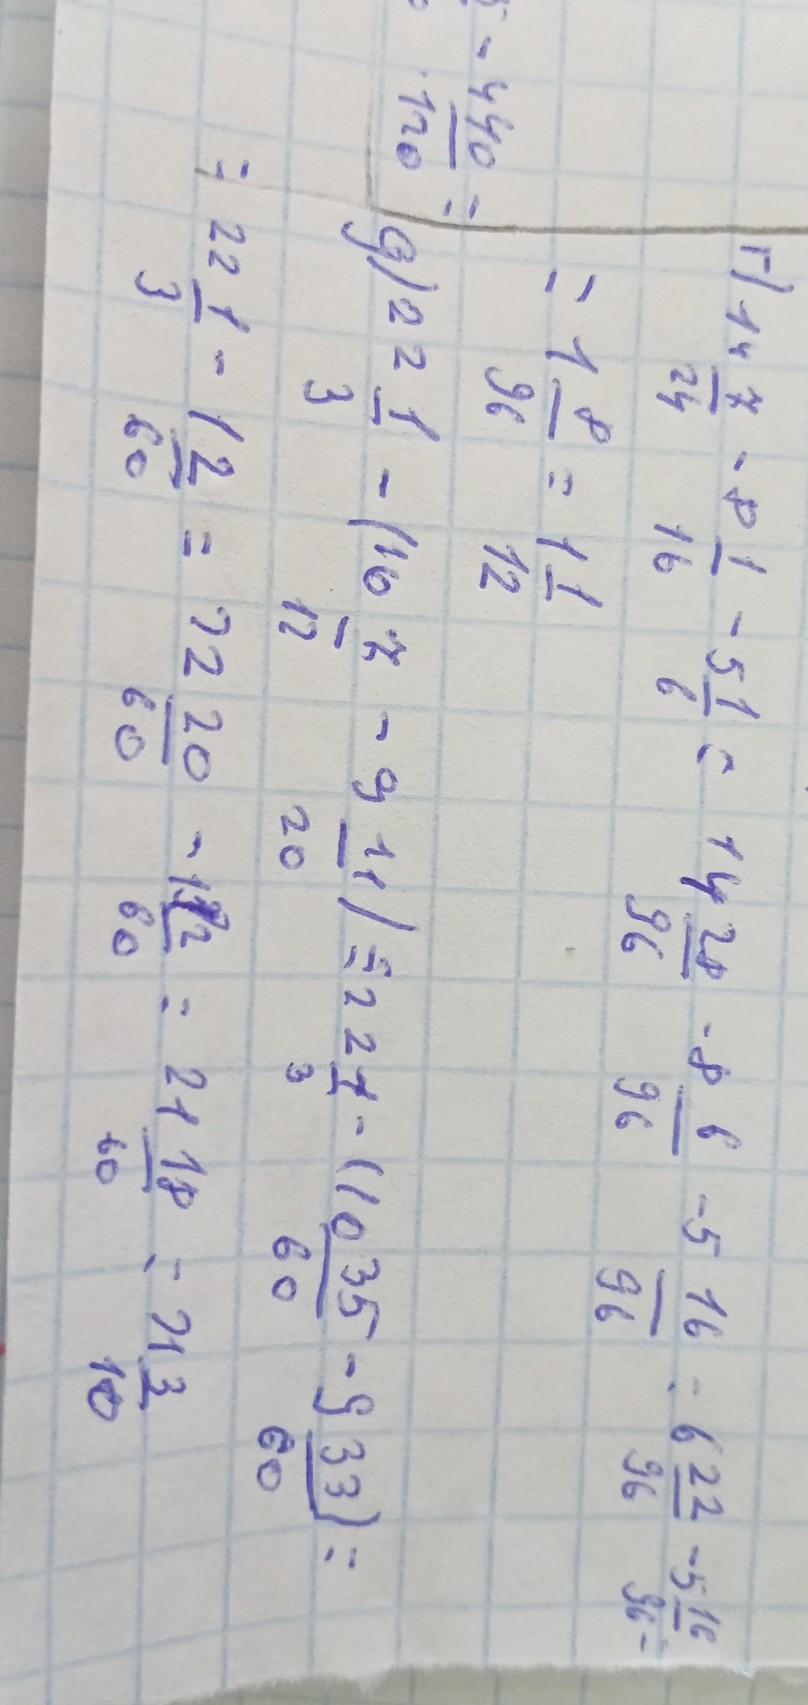 - 4 40/120 =
г) 14 7/24 - 8 1/16 - 5 1/6 = 14 28/96 - 8 6/96 - 5 16/96 = 6 22/96 - 5 16/96 =
= 1 8/96 = 1 1/12
д) 22 1/3 - (10 7/12 - 9 11/20) = 22 1/3 - (10 35/60 - 9 33/60) =
= 22 1/3 - 1 2/60 = 22 20/60 - 1 2/60 = 21 18/60 = 21 3/10